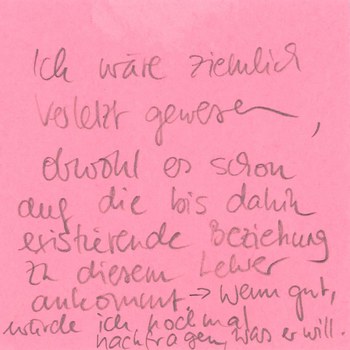 Ich wäre ziemlich
verletzt gewesen,
obwohl es schon
auf die bis dahin
existierende Beziehung
zu diesem Lehrer
ankommt. → Wenn gut,
würde ich nochmal
nachfragen, was er will.